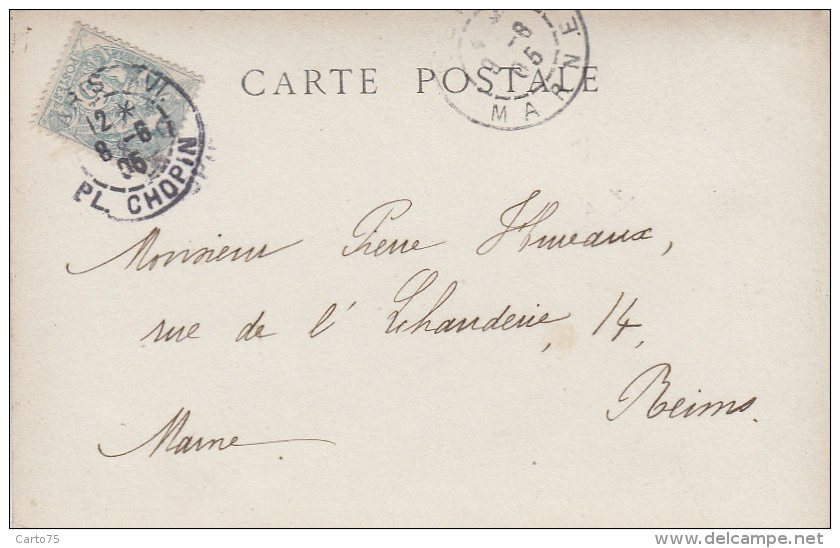 CARTE POSTALE
12 *
8 -6
05
PL. CHOPIN
9 -8
05
MARNE
Monsieur Pierre Hureaux,
rue de l' Echanderie, 14,
Reims.
Marne
Carto75
www.delcampe.net